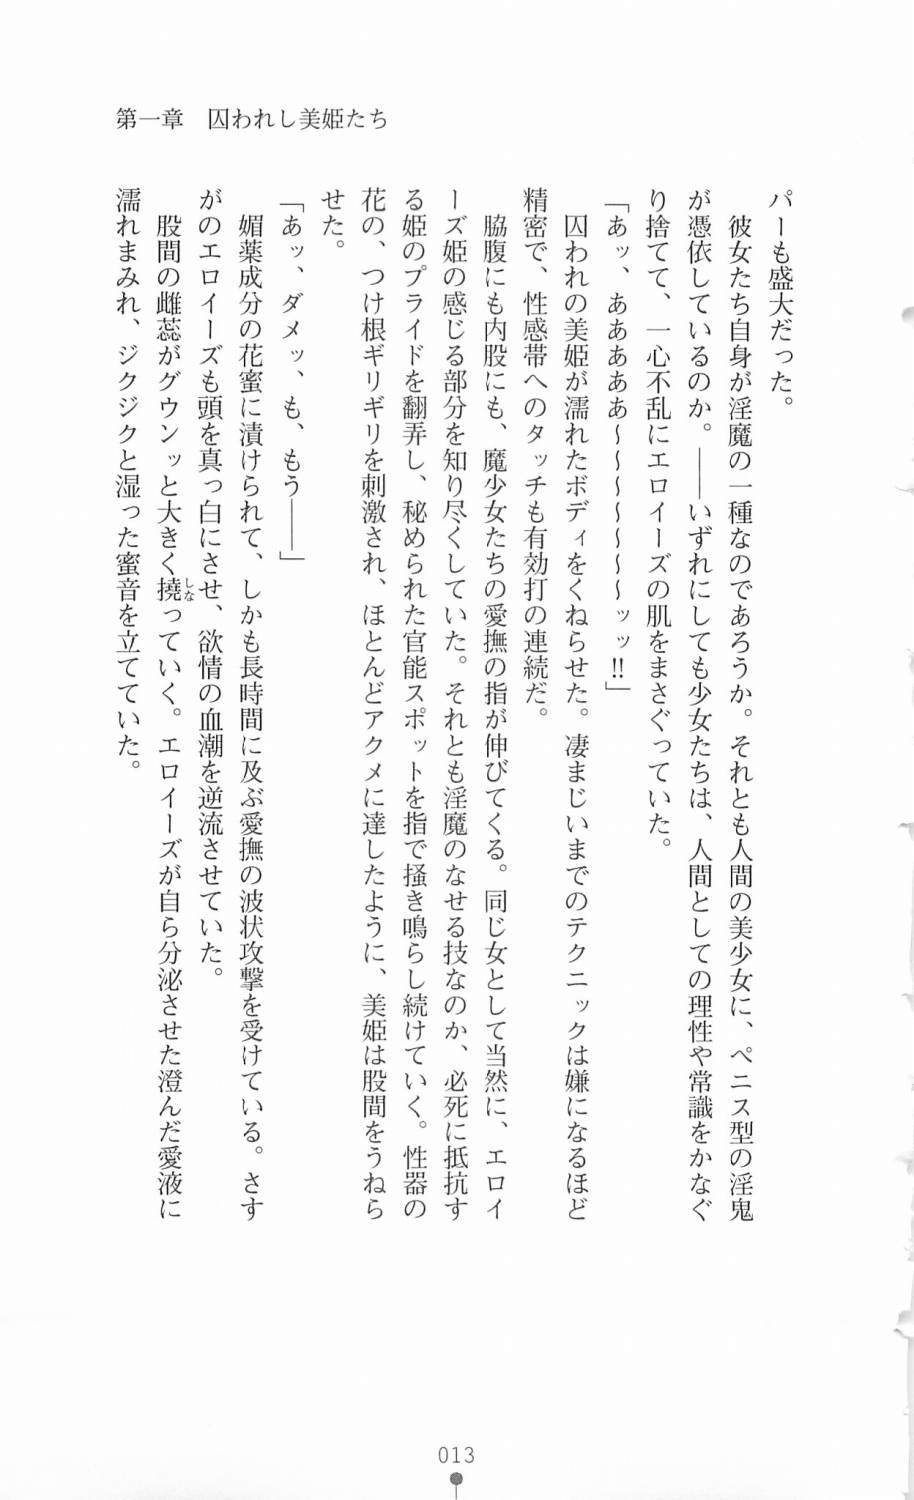 第一章　囚われし美姫たち
パーも盛大だった。
　彼女たち自身が淫魔の一種なのであろうか。それとも人間の美少女に、ペニス型の淫鬼
が憑依しているのか。――いずれにしても少女たちは、人間としての理性や常識をかなぐ
り捨てて、一心不乱にエロイーズの肌をまさぐっていた。
「あッ、あああああ～～～～～～～ッッ!!」
　囚われの美姫が濡れたボディをくねらせた。凄まじいまでのテクニックは嫌になるほど
精密で、性感帯へのタッチも有効打の連続だ。
　脇腹にも内股にも、魔少女たちの愛撫の指が伸びてくる。同じ女として当然に、エロイ
ーズ姫の感じる部分を知り尽くしていた。それとも淫魔のなせる技なのか、必死に抵抗す
る姫のプライドを翻弄し、秘められた官能スポットを指で掻き鳴らし続けていく。性器の
花の、つけ根ギリギリを刺激され、ほとんどアクメに達したように、美姫は股間をうねら
せた。
「あッ、ダメッ、も、もう――」
　媚薬成分の花蜜に漬けられて、しかも長時間に及ぶ愛撫の波状攻撃を受けている。さす
がのエロイーズも頭を真っ白にさせ、欲情の血潮を逆流させていた。
　股間の雌蕊がグウンッと大きく撓しなっていく。エロイーズが自ら分泌させた澄んだ愛液に
濡れまみれ、ジクジクと湿った蜜音を立てていた。
013